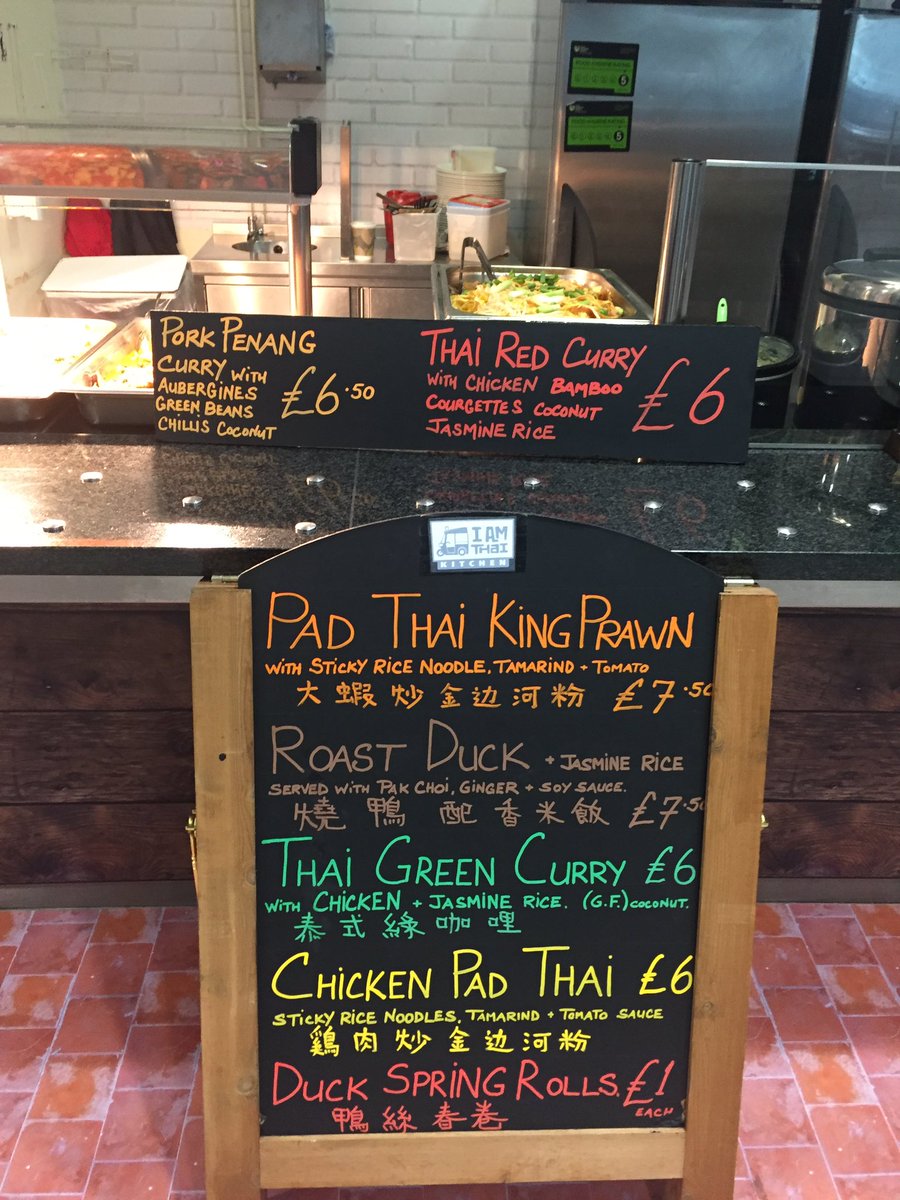 FOOD HYGIENE RATING
5
FOOD HYGIENE RATING
5
PORK PENANG
CURRY WITH
AUBERGINES
GREEN BEANS
CHILLIS COCONUT
£6.50
THAI RED CURRY
WITH CHICKEN BAMBOO
COURGETTES COCONUT
JASMINE RICE
£6
I AM
THAI
KITCHEN
PAD THAI KING PRAWN
WITH STICKY RICE NOODLE, TAMARIND + TOMATO
大蝦炒金边河粉 £7.50
ROAST DUCK + JASMINE RICE
SERVED WITH PAK CHOI, GINGER + SOY SAUCE.
燒鴨 配香米飯 £7.50
THAI GREEN CURRY £6
WITH CHICKEN + JASMINE RICE. (G.F.) COCONUT.
泰式緣咖哩
CHICKEN PAD THAI £6
STICKY RICE NOODLES, TAMARIND + TOMATO SAUCE
鷄肉炒金边河粉
DUCK SPRING ROLLS. £1
EACH
鴨絲春卷